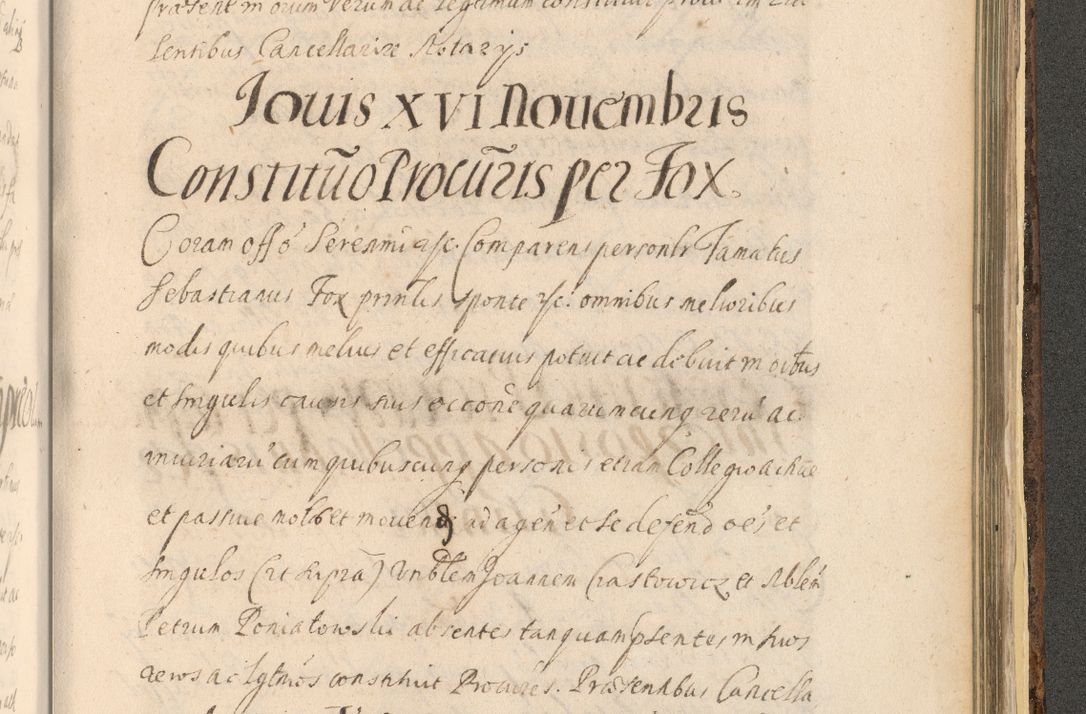 sentibus Cancellariæ Notarÿs
Iouis XVI Nouembris
Constitũo Procũris per Fox
Coram offõ Serenmi &c. Comparens personlr Famatus
Sebastianus Fox prinlis sponte &c: omnibus melioribus
modis quibus melius et efficatius potuit ac debuit in oibus
et singulis causis suis occõne quarumcunq rerũ ac
iniuriarũ cum quibuscunq personis etiam Collegio actiue
et passiue motis et mouendis ad agen et se defend oes et
singulos (ut supra) Vnblem Joannem Crastowicz et Nblem
Petrum Poniatowski absentes tanquam psentes in suos
veros ac lgtmos constituit Procures. Præsentibus Cancella